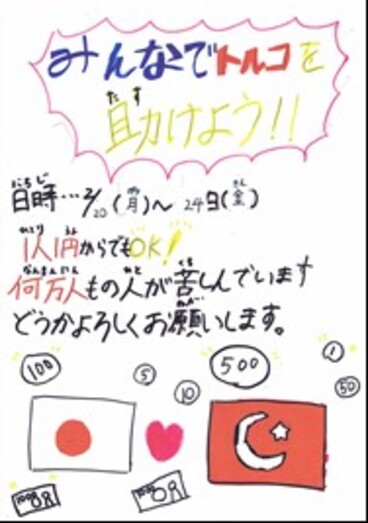 みんなでトルコを
たす
助けよう!!
にちじ
日時…2/20(月)~24日(金)
ひとり えん
1人1円からでもOK!
なんまんにん ひと くる
何万人もの人が苦しんでいます
ねが
どうかよろしくお願いします。
100 5 10 500 1 50